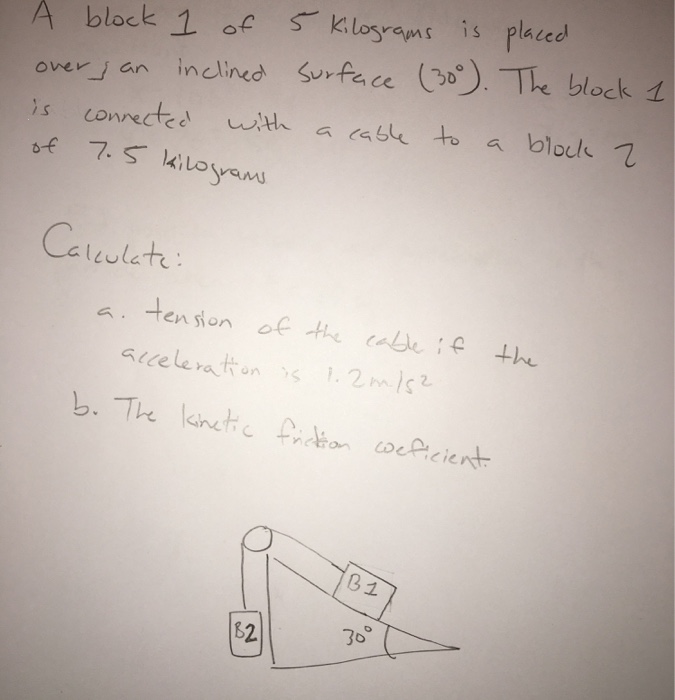 A block 1 of 5 kilograms is placed
over an inclined surface (30°). The block 1
is connected with a cable to a block 2
of 7.5 kilograms
Calculate:
a. tension of the cable if the
acceleration is 1.2m/s2
b. The kinetic friction coeficient.
B1
B2
30°